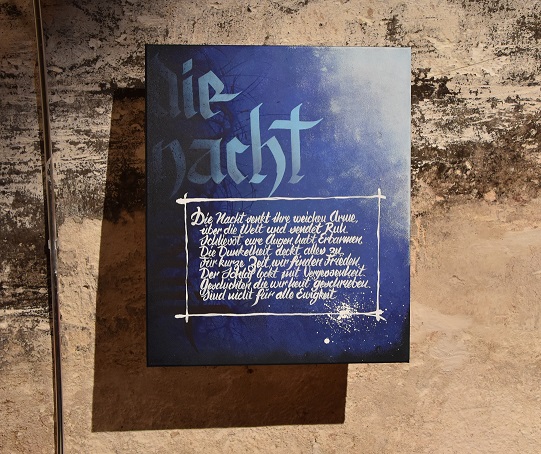 die
nacht
Die Nacht senkt ihre weichen Arme,
über die Welt und sendet Ruh.
Schliesst eure Augen, habt Erbarmen,
Die Dunkelheit deckt alles zu.
Für kurze Zeit wir finden Frieden,
Der Schlaf lockt mit Vergessenheit.
Geschichten die wir heut geschrieben.
Sind nicht für alle Ewigkeit